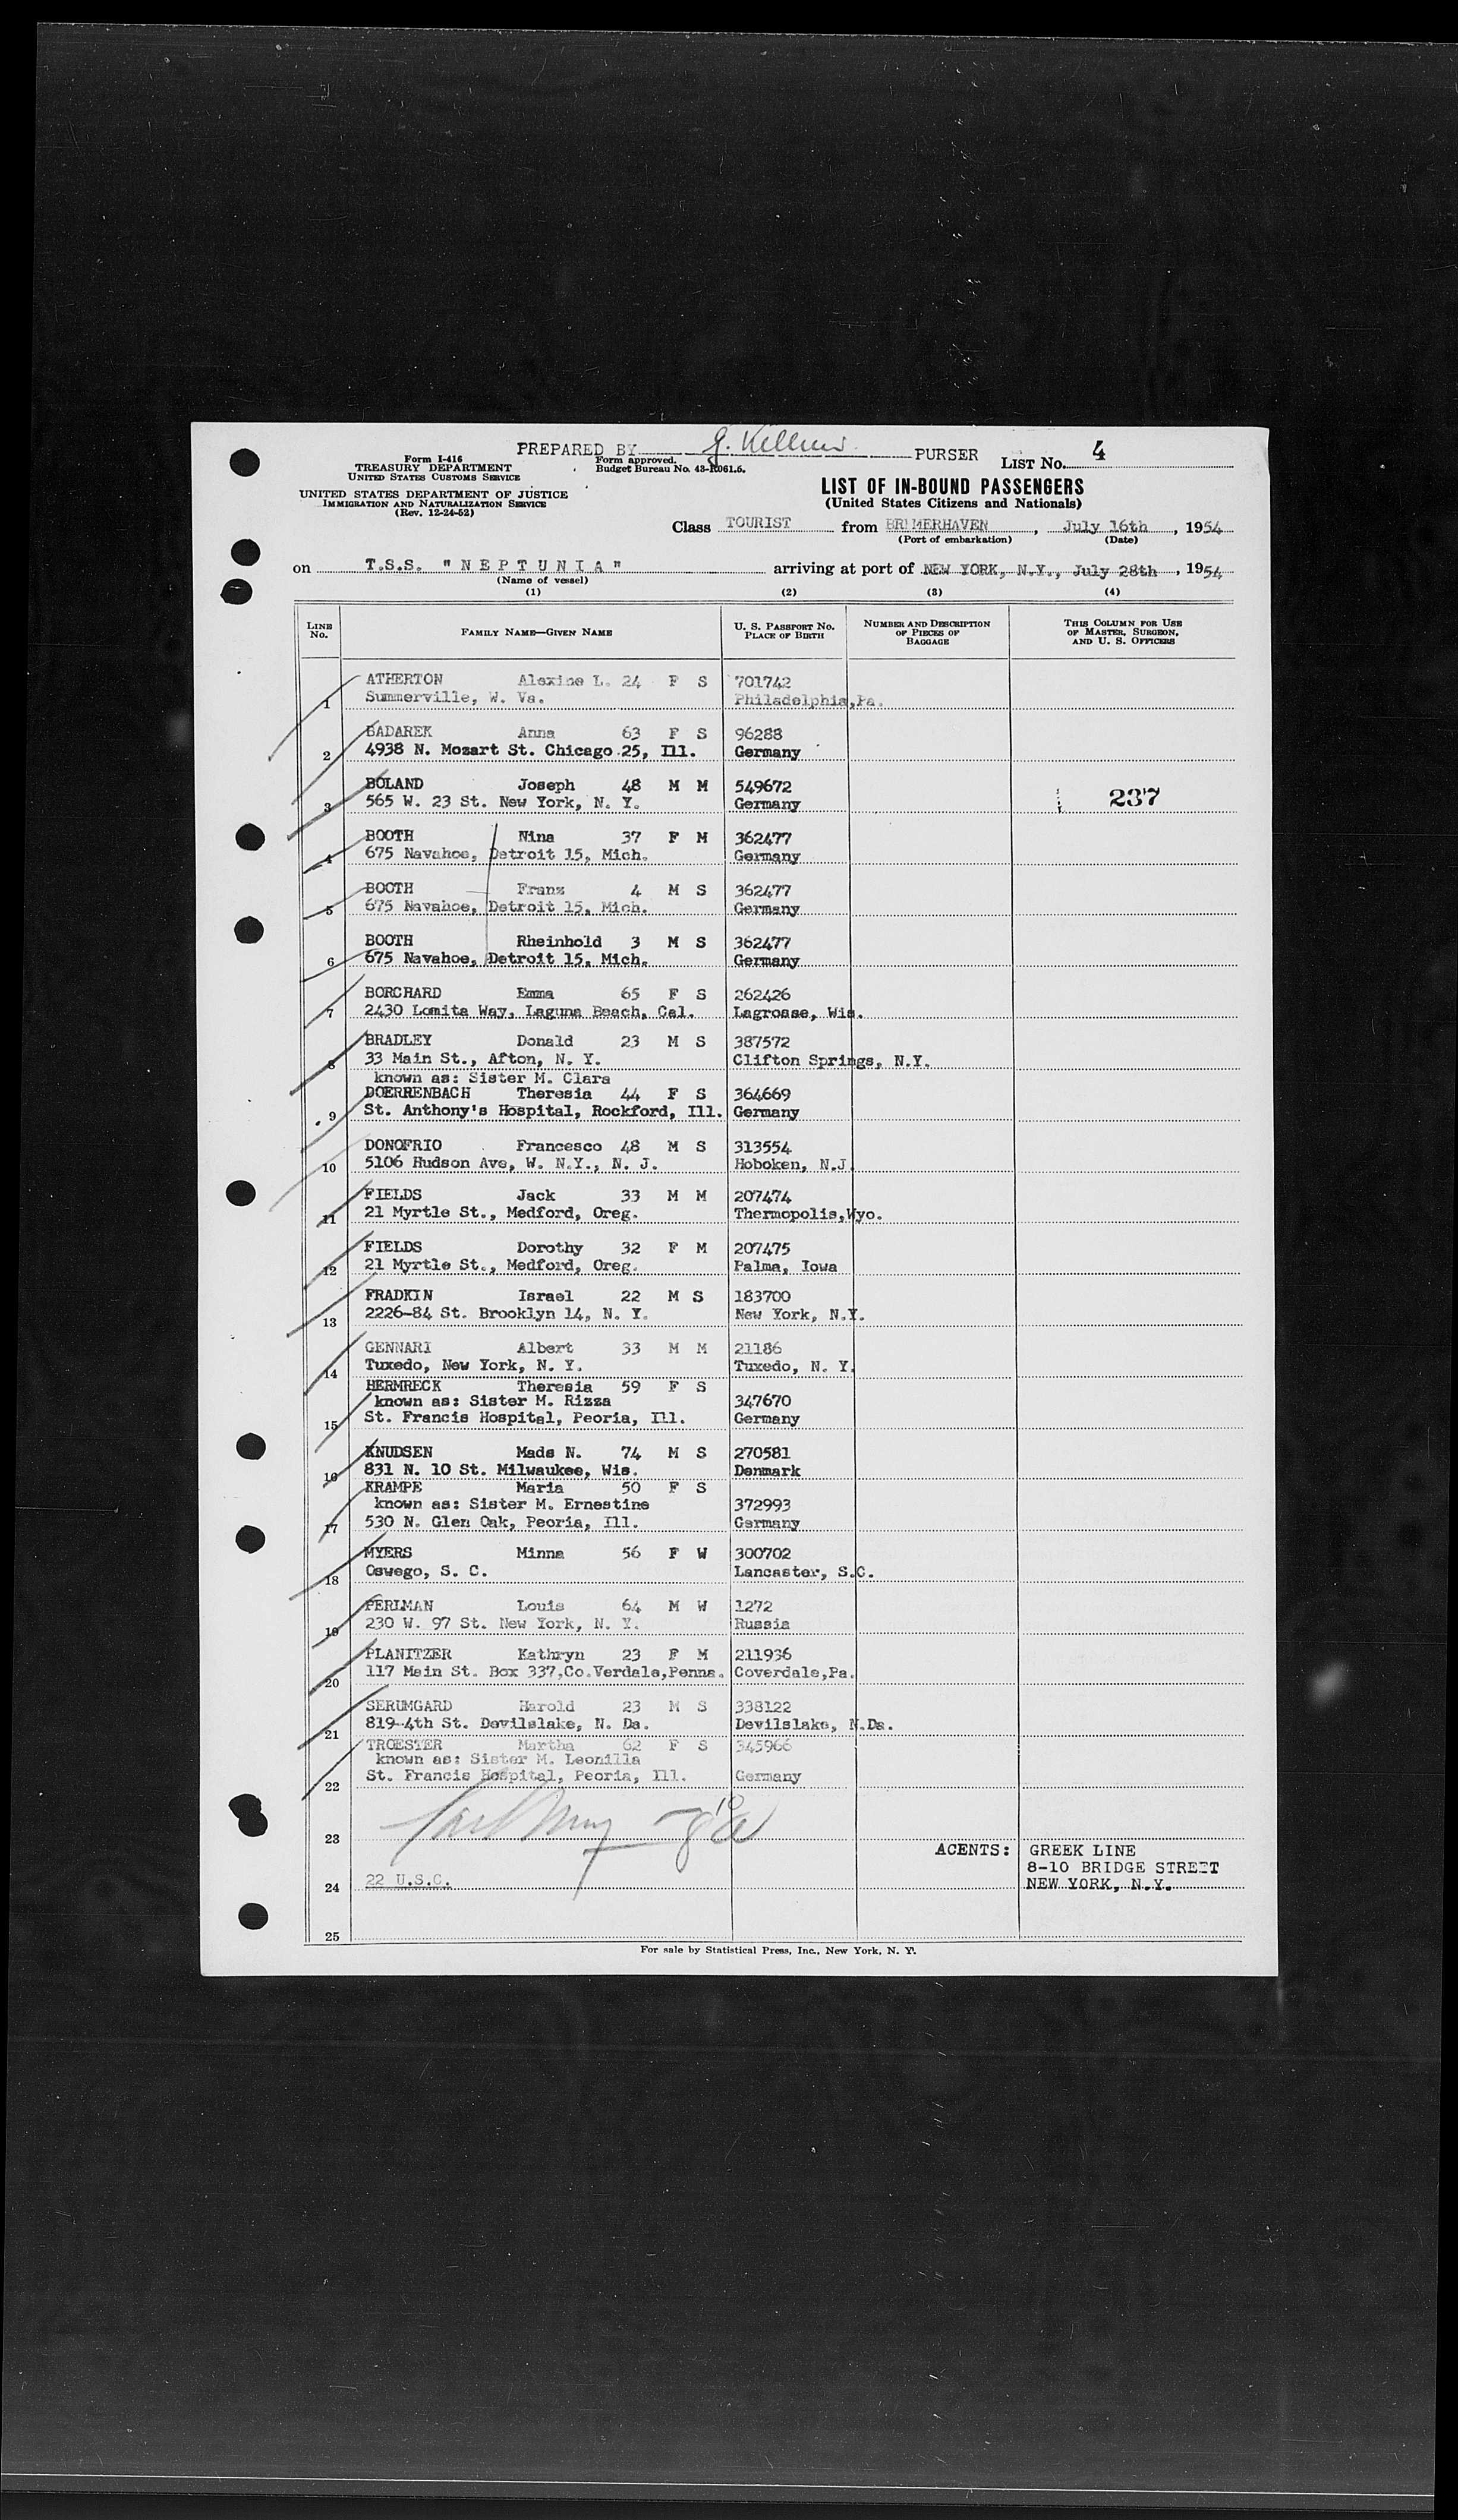 PREPARED BY G. Kellner PURSER
LIST No. 4
Form I-416
TREASURY DEPARTMENT
UNITED STATES CUSTOMS SERVICE
Form approved.
Budget Bureau No. 43-R061.5.
UNITED STATES DEPARTMENT OF JUSTICE
IMMIGRATION AND NATURALIZATION SERVICE
(Rev. 12-24-52)
LIST OF IN-BOUND PASSENGERS
(United States Citizens and Nationals)
Class TOURIST from BREMERHAVEN, July 16th, 1954
(Port of embarkation) (Date)
on T.S.S. "NEPTUNIA" arriving at port of NEW YORK, N.Y., July 28th, 1954
(Name of vessel)
(1) (2) (3) (4)
LINE No. FAMILY NAME—GIVEN NAME U. S. PASSPORT No. PLACE OF BIRTH NUMBER AND DESCRIPTION OF PIECES OF BAGGAGE THIS COLUMN FOR USE OF MASTER, SURGEON, AND U. S. OFFICERS
ATHERTON Alexine L. 24 F S 701742
1 Summerville, W. Va. Philadelphia,Pa.
BADAREK Anna 63 F S 96288
2 4938 N. Mozart St. Chicago 25, Ill. Germany
BOLAND Joseph 48 M M 549672
3 565 W. 23 St. New York, N. Y. Germany 237
BOOTH Nina 37 F M 362477
4 675 Navahoe, Detroit 15, Mich. Germany
BOOTH Franz 4 M S 362477
5 675 Navahoe, Detroit 15, Mich. Germany
BOOTH Rheinhold 3 M S 362477
6 675 Navahoe, Detroit 15, Mich. Germany
BORCHARD Emma 65 F S 262426
7 2430 Lomita Way, Laguna Beach, Cal. Lagrosse, Wis.
BRADLEY Donald 23 M S 387572
8 33 Main St., Afton, N. Y. Clifton Springs, N.Y.
known as: Sister M. Clara
DOERRENBACH Theresia 44 F S 364669
9 St. Anthony's Hospital, Rockford, Ill. Germany
DONOFRIO Francesco 48 M S 313554
10 5106 Hudson Ave, W. N.Y., N. J. Hoboken, N.J.
FIELDS Jack 33 M M 207474
11 21 Myrtle St., Medford, Oreg. Thermopolis,Wyo.
FIELDS Dorothy 32 F M 207475
12 21 Myrtle St., Medford, Oreg. Palma, Iowa
FRADKIN Israel 22 M S 183700
13 2226-84 St. Brooklyn 14, N. Y. New York, N.Y.
GENNARI Albert 33 M M 21186
14 Tuxedo, New York, N. Y. Tuxedo, N. Y.
HERMRECK Theresia 59 F S
known as: Sister M. Rizza 347670
15 St. Francis Hospital, Peoria, Ill. Germany
KNUDSEN Mads N. 74 M S 270581
16 831 N. 10 St. Milwaukee, Wis. Denmark
KRAMPE Maria 50 F S
known as: Sister M. Ernestine 372993
17 530 N. Glen Oak, Peoria, Ill. Germany
MYERS Minna 56 F W 300702
18 Oswego, S. C. Lancaster, S.C.
PERLMAN Louis 64 M W 1272
19 230 W. 97 St. New York, N. Y. Russia
PLANITZER Kathryn 23 F M 211936
20 117 Main St. Box 337,Co.Verdale,Penna. Coverdale,Pa.
SERUMGARD Harold 23 M S 338122
21 819-4th St. Devilslake, N. Da. Devilslake, N.Da.
TROESTER Martha 62 F S 345966
known as: Sister M. Leonilla
22 St. Francis Hospital, Peoria, Ill. Germany
23
AGENTS: GREEK LINE
8-10 BRIDGE STREET
24 22 U.S.C. NEW YORK, N.Y.
25
For sale by Statistical Press, Inc., New York, N. Y.